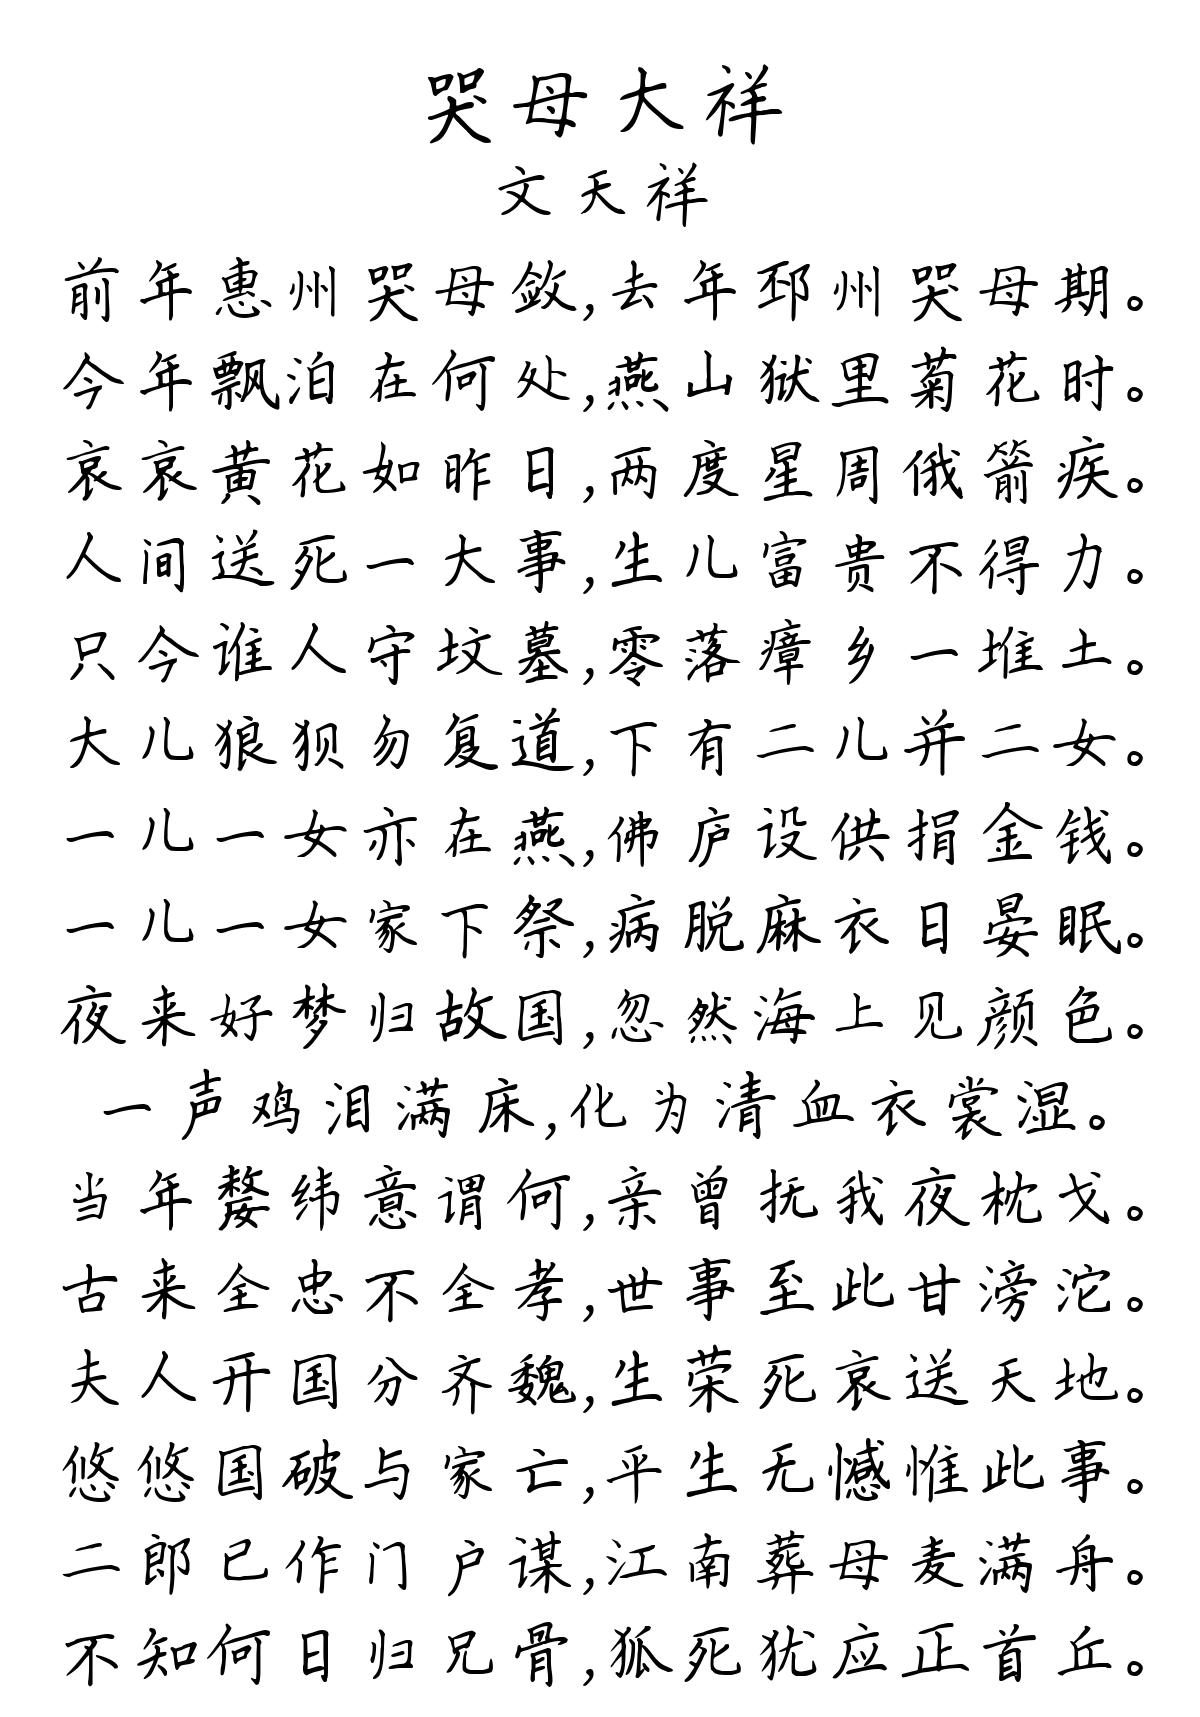 哭母大祥
文天祥
前年惠州哭母敛,去年邳州哭母期。
今年飘泊在何处,燕山狱里菊花时。
哀哀黄花如昨日,两度星周俄箭疾。
人间送死一大事,生儿富贵不得力。
只今谁人守坟墓,零落瘴乡一堆土。
大儿狼狈勿复道,下有二儿并二女。
一儿一女亦在燕,佛庐设供捐金钱。
一儿一女家下祭,病脱麻衣日晏眠。
夜来好梦归故国,忽然海上见颜色。
一声鸡泪满床,化为清血衣裳湿。
当年嫠纬意谓何,亲曾抚我夜枕戈。
古来全忠不全孝,世事至此甘滂沱。
夫人开国分齐魏,生荣死哀送天地。
悠悠国破与家亡,平生无憾惟此事。
二郎已作门户谋,江南葬母麦满舟。
不知何日归兄骨,狐死犹应正首丘。